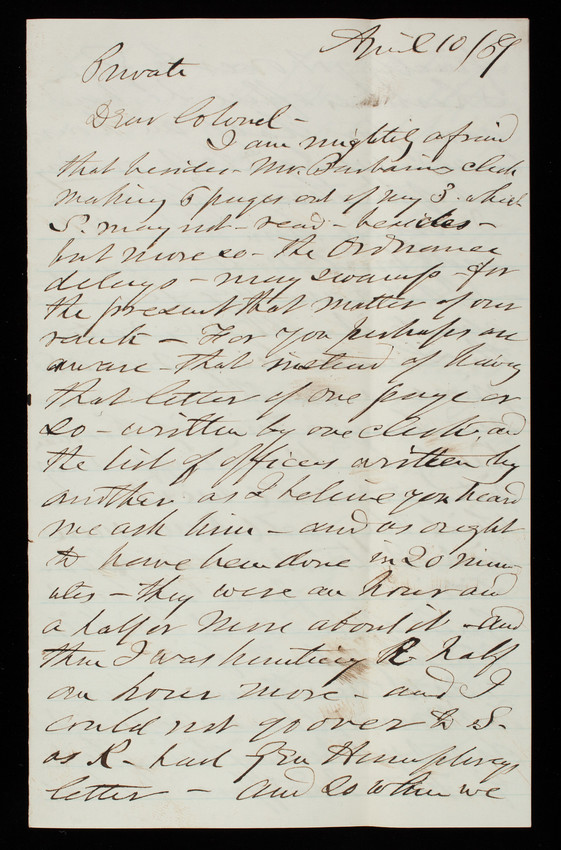 April 10/69
Private
Dear Colonel -
I am mightily afraid
that besides - Mr. Barbarins clerk
making 6 pages out of my 3. which
S. may not - read - besides -
but more so - the Ordnance
delays - may swamp - for
the present that matter of our
rank - For you perhaps are
aware - that instead of having
that letter of one page or
so - written by one clerk, and
the list of officers written by
another as I believe you heard
me ask him - and as ought
to have been done in 20 min-
utes - they were an hour and
a half or more about it - and
then I was hunting R - half
an hour more - and I
could not go over to S -
as R - had Gen Humphreys
letter - and so when we